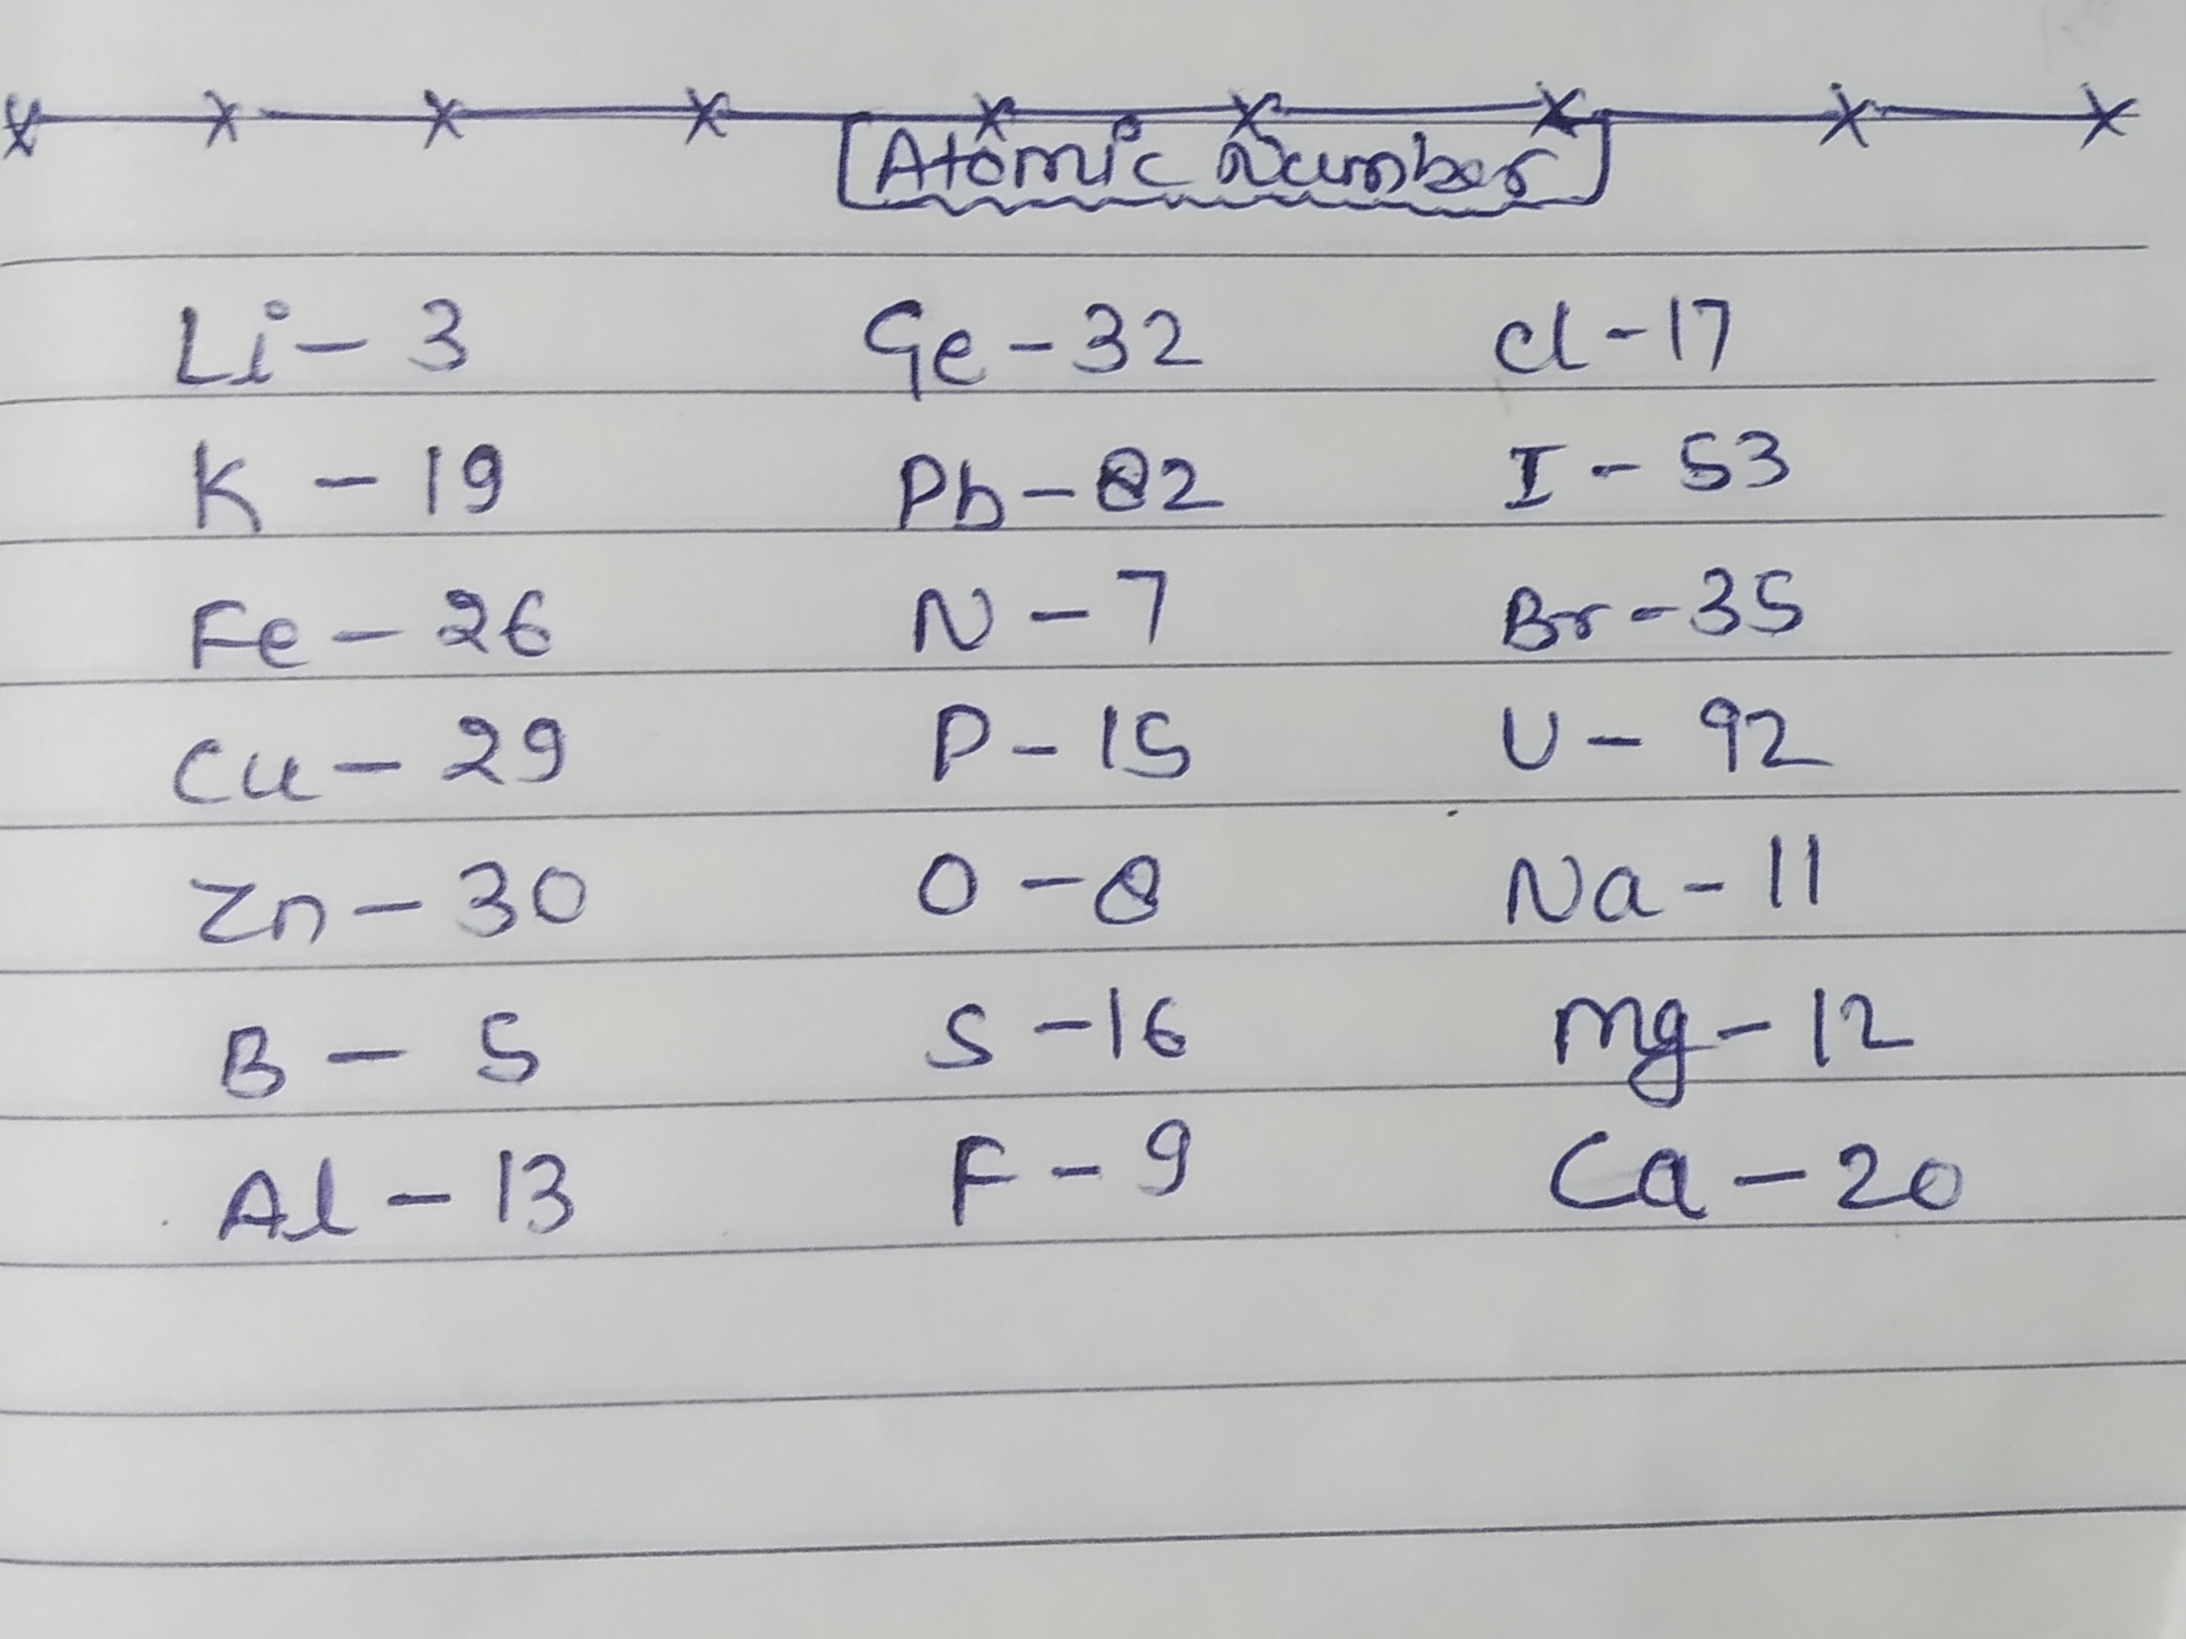 Atomic Number
Li - 3 Ge - 32 Cl - 17
K - 19 Pb - 82 I - 53
Fe - 26 N - 7 Br - 35
Cu - 29 P - 15 U - 92
Zn - 30 O - 8 Na - 11
B - 5 S - 16 Mg - 12
Al - 13 F - 9 Ca - 20